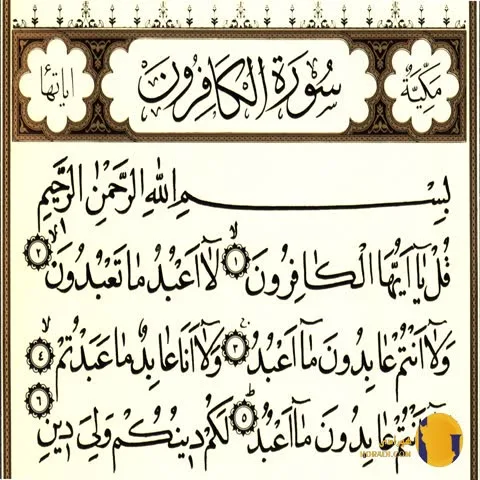 مَكِّيَّةٌ سُورَةُ الْكَافِرُونَ اٰيَاتُهَا
بِسْمِ اللّٰهِ الرَّحْمٰنِ الرَّحِيمِ
قُلْ يَٓا اَيُّهَا الْكَافِرُونَ ﴿١﴾ لَٓا اَعْبُدُ مَا تَعْبُدُونَ ﴿٢﴾
وَلَٓا اَنْتُمْ عَابِدُونَ مَٓا اَعْبُدُ ﴿٣﴾ وَلَٓا اَنَا عَابِدٌ مَا عَبَدْتُمْ ﴿٤﴾
اَنْتُمْ عَابِدُونَ مَٓا اَعْبُدُ ﴿٥﴾ لَكُمْ دِينُكُمْ وَلِيَ دِينِ ﴿٦﴾
MORADI.COM